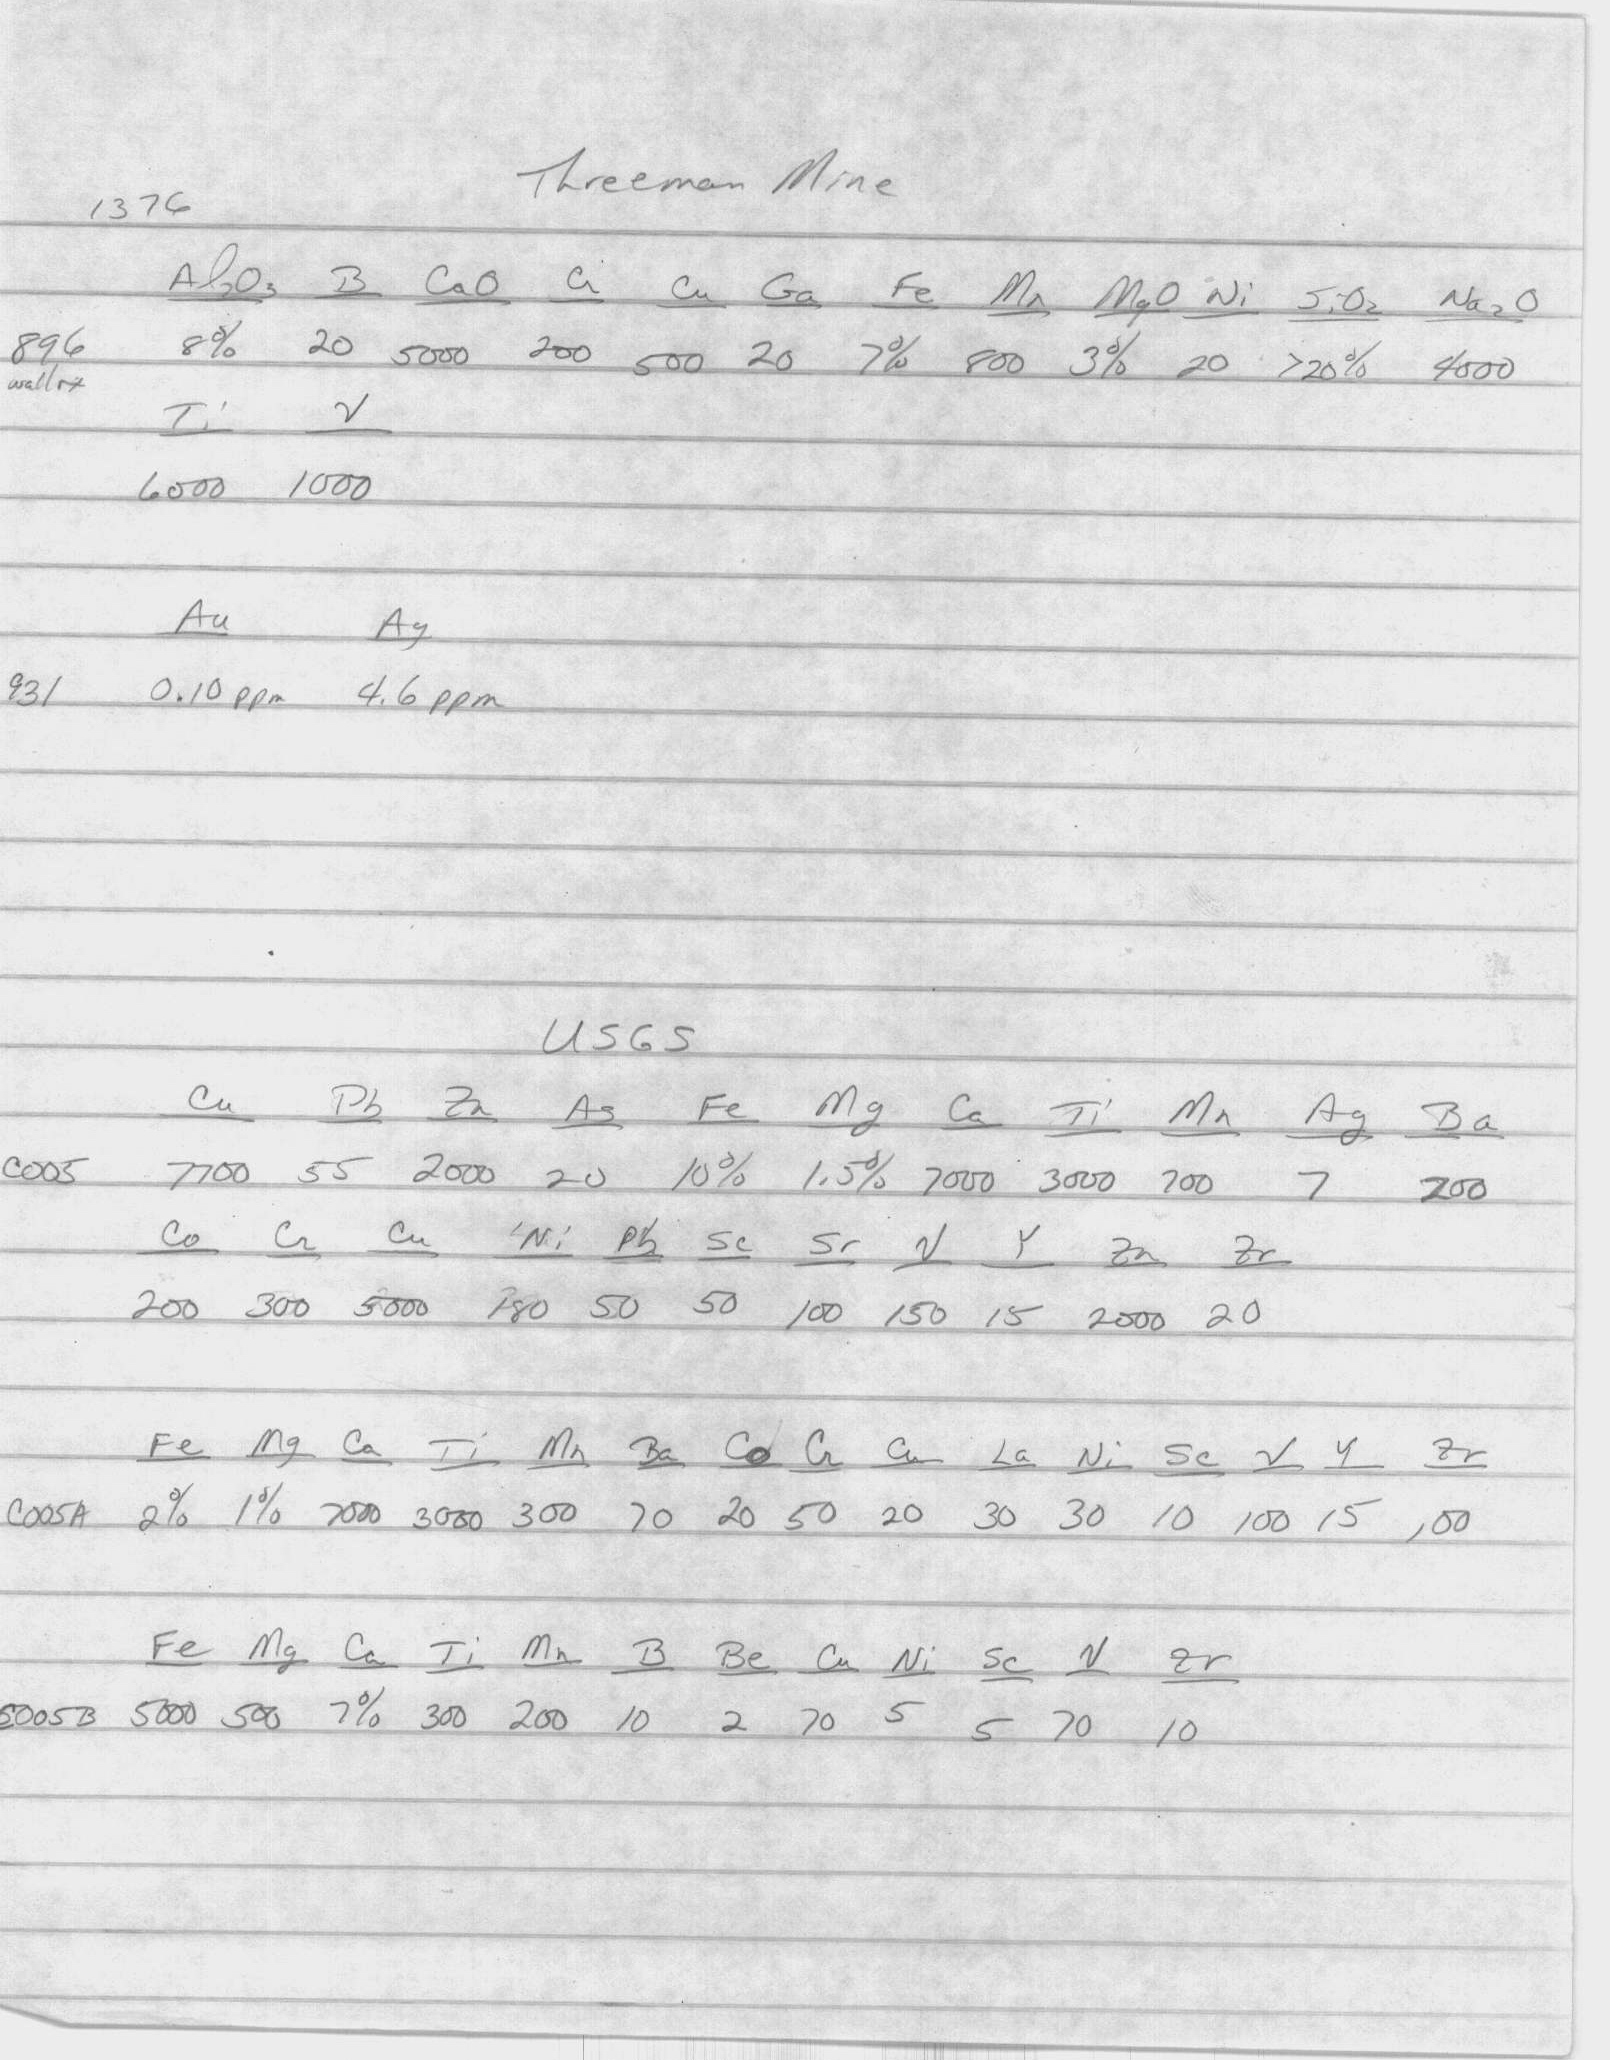 Threeman Mine
1376
Al2O3 B CaO Cr Cu Ga Fe Mn MgO Ni SiO2 Na2O
896 8% 20 5000 200 500 20 7% 800 3% 20 >20% 4000
wallrx
Ti V
6000 1000
Au Ag
931 0.10 ppm 4.6 ppm
USGS
Cu Pb Zn As Fe Mg Ca Ti Mn Ag Ba
C005 7700 55 2000 20 10% 1.5% 7000 3000 700 7 200
Co Cr Cu Ni Pb Sc Sr V Y Zn Zr
200 300 5000 50 50 100 150 15 2000 20
Fe Mg Ca Ti Mn Ba Co Cr Cu La Ni Sc V Y Zr
C005A 2% 1% 7000 3000 300 70 20 50 20 30 30 10 100 15 100
Fe Mg Ca Ti Mn B Be Cu Ni Sc V Zr
C005B 5000 500 7% 300 200 10 2 70 5 5 70 10